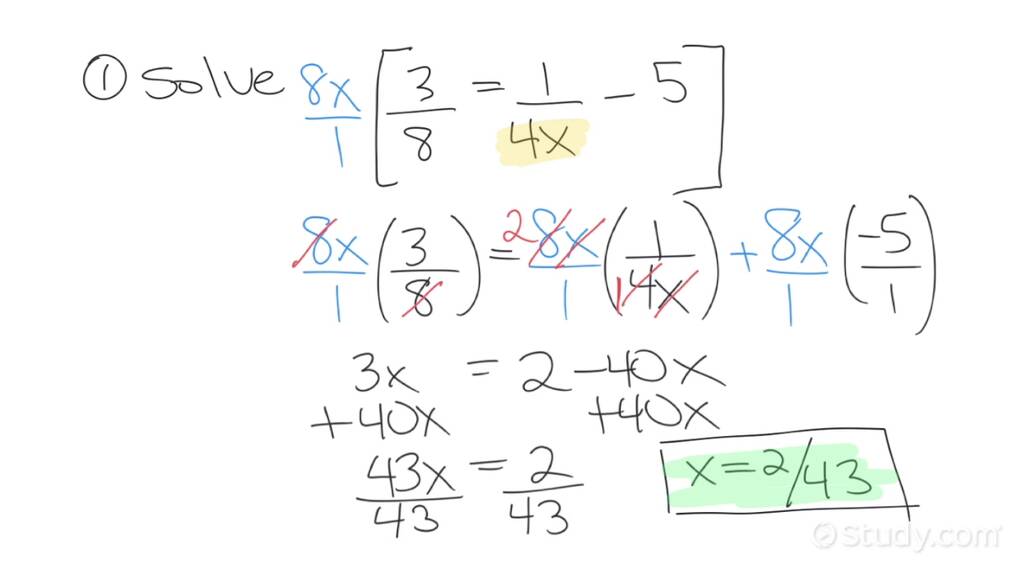 ① Solve 8x/1 [3/8 = 1/4x - 5]
8x/1 (3/8) = 2 8x/1 (1/1 4x) + 8x/1 (-5/1)
3x = 2 - 40x
+40x +40x
43x/43 = 2/43
x = 2/43
Study.com